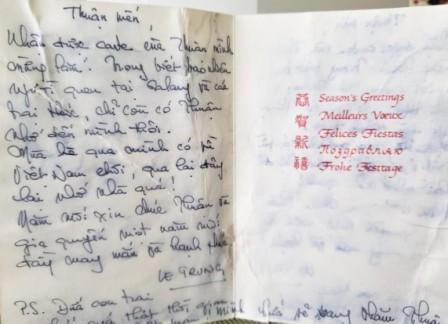 Thuận mến,
Nhận được carte của Thuận mình
mừng lắm. Trong biết bao nhiêu
người quen tại Galang và các
trại khác, chỉ còn có Thuận
nhớ đến mình thôi.
Mùa hè qua mình có về
Việt Nam chơi, qua lại đây
lại nhớ nhà quá!
Năm mới xin chúc Thuận và
gia quyến một năm mới
đầy may mắn và hạnh phúc
LE TRUNG
P.S. Đứa con trai
thật thời gian mình
恭 Season's Greetings
賀 Meilleurs Vœux
新 Felices Fiestas
Поздравляю
禧 Frohe Festtage